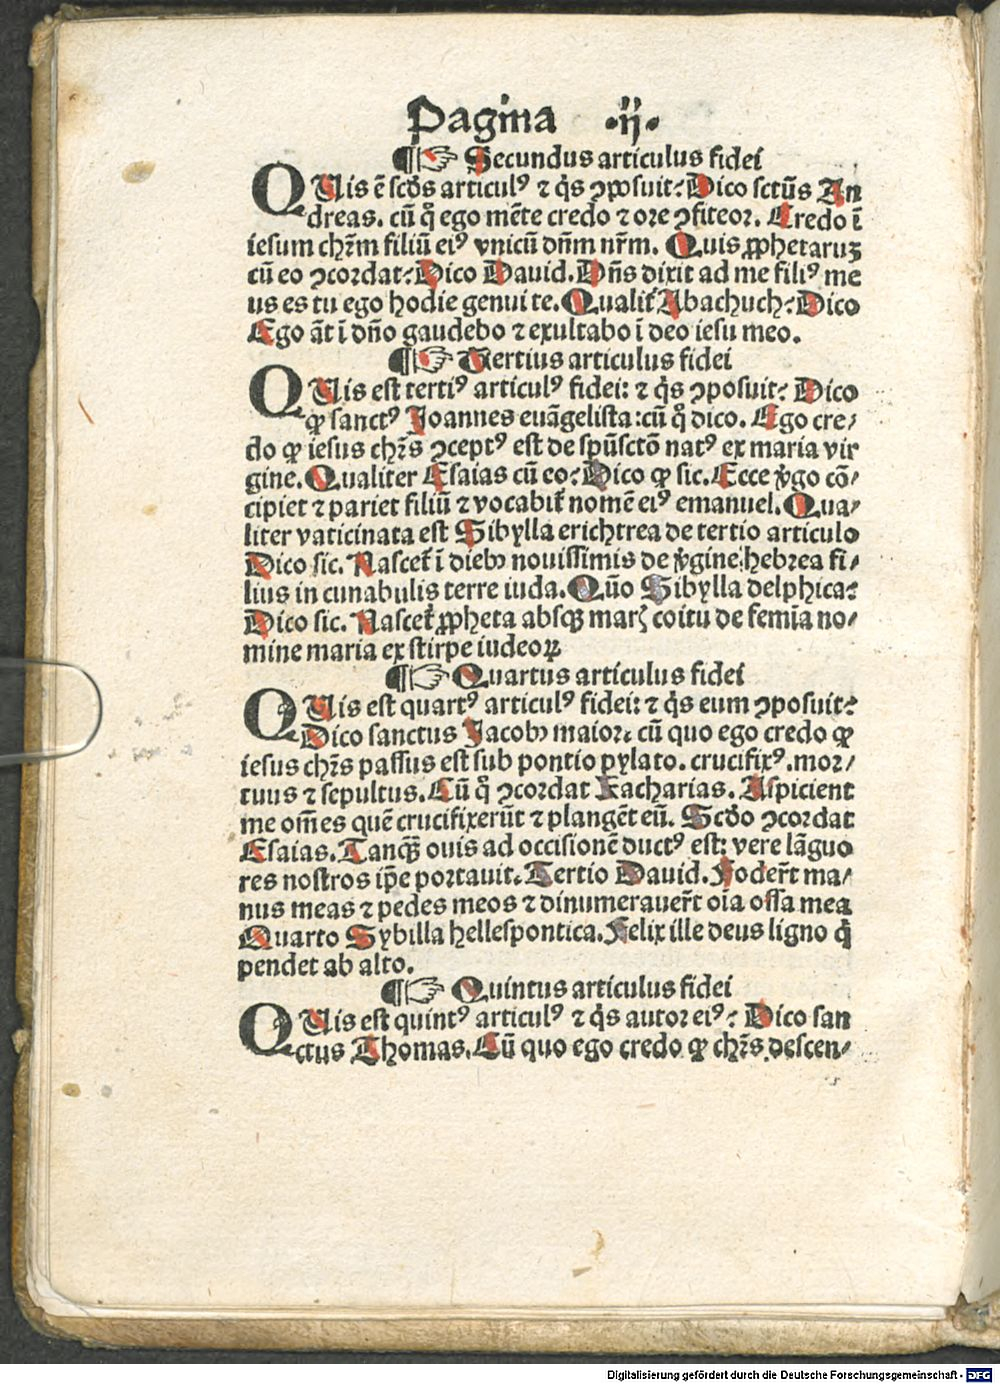 Pagina .ij.
¶☞ Secundus articulus fidei
QUis ē scđs articulꝰ ⁊ q̇s ꝯposuit? Dico sctūs An
dreas. cū q̊ ego mēte credo ⁊ ore ꝯfiteor. Credo ī
iesum chr̄m filiū eiꝰ vnicū dn̄m nr̄m. Quis ꝓphetaruꝫ
cū eo ꝯcordat? Dico Dauid. Dn̄s dixit ad me filiꝰ me
us es tu ego hodie genui te. Qualit̄ Abachuch? Dico
Ego āt ī dn̄o gaudebo ⁊ exultabo ī deo iesu meo.
¶☞ Tertius articulus fidei
QUis est tertiꝰ articulꝰ fidei: ⁊ q̇s ꝯposuit? Dico
ꝙ sanctꝰ Joannes euāgelista: cū q̊ dico. Ego cre/
do ꝙ iesus chr̄s ꝯceptꝰ est de spūsctō natꝰ ex maria vir
gine. Qualiter Esaias cū eo? Dico ꝙ sic. Ecce v̇go cō/
cipiet ⁊ pariet filiū ⁊ vocabit̄ nomē eiꝰ emanuel. Qua/
liter vaticinata est Sibylla erichtrea de tertio articulo
Dico sic. Nascet̄ ī diebꝰ nouissimis de v̇gine hebrea fi/
lius in cunabulis terre iuda. Quō Sibylla delphica?
Dico sic. Nascet̄ ꝓpheta absqꝫ mar꜀ coitu de femīa no/
mine maria ex stirpe iudeoꝝ
¶☞ Quartus articulus fidei
QUis est quartꝰ articulꝰ fidei: ⁊ q̇s eum ꝯposuit?
Dico sanctus Jacobꝰ maior. cū quo ego credo ꝙ
iesus chr̄s passus est sub pontio pylato. crucifixꝰ. mor/
tuus ⁊ sepultus. Cū q̊ ꝯcordat Zacharias. Aspicient
me om̄es quē crucifixerūt ⁊ plangēt eū. Scđo ꝯcordat
Esaias. Tanqꝫ ouis ad occisionē ductꝰ est: vere lāguo
res nostros ip̄e portauit. Tertio Dauid. Foder̄t ma/
nus meas ⁊ pedes meos ⁊ dinumerauer̄t oīa ossa mea
Quarto Sybilla hellespontica. Felix ille deus ligno q̇
pendet ab alto.
¶☞ Quintus articulus fidei
QUis est quintꝰ articulꝰ ⁊ q̇s autor eiꝰ? Dico san
ctus Thomas. Cū quo ego credo ꝙ chr̄s descen/
Digitalisierung gefördert durch die Deutsche Forschungsgemeinschaft - DFG